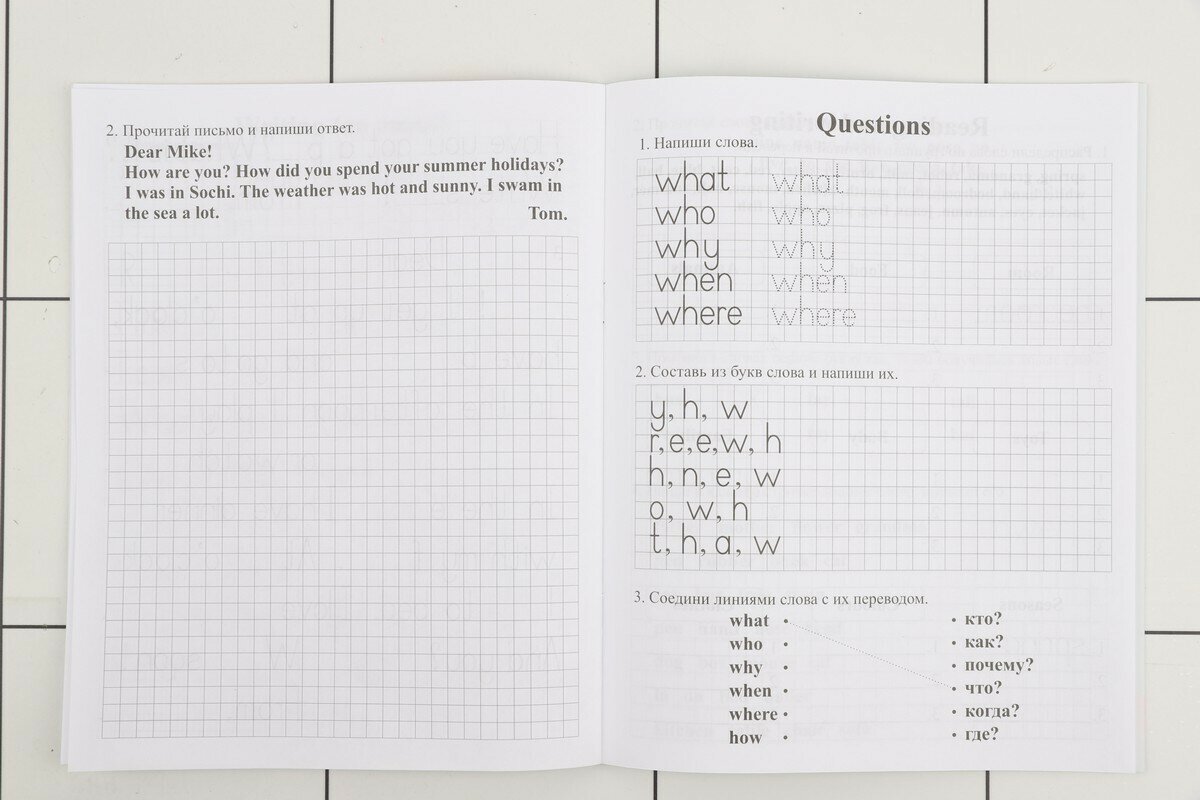 2. Прочитай письмо и напиши ответ.
Dear Mike!
How are you? How did you spend your summer holidays?
I was in Sochi. The weather was hot and sunny. I swam in
the sea a lot. Tom.
Questions
1. Напиши слова.
what what
who who
why why
when when
where where
2. Составь из букв слова и напиши их.
y, h, w
r, e, e, w, h
h, n, e, w
o, w, h
t, h, a, w
3. Соедини линиями слова с их переводом.
what • • кто?
who • • как?
why • • почему?
when • • что?
where • • когда?
how • • где?